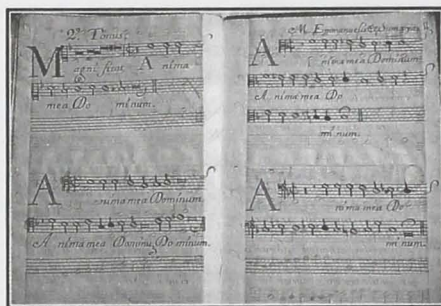 2. Tonus.
Magni ficat A nima
mea Do minum.
A nima mea Dominum.
A nima mea Dominū Dominum.
A nima mea Dominum.
A nima mea Do
minum.
A nima mea Do
minum.